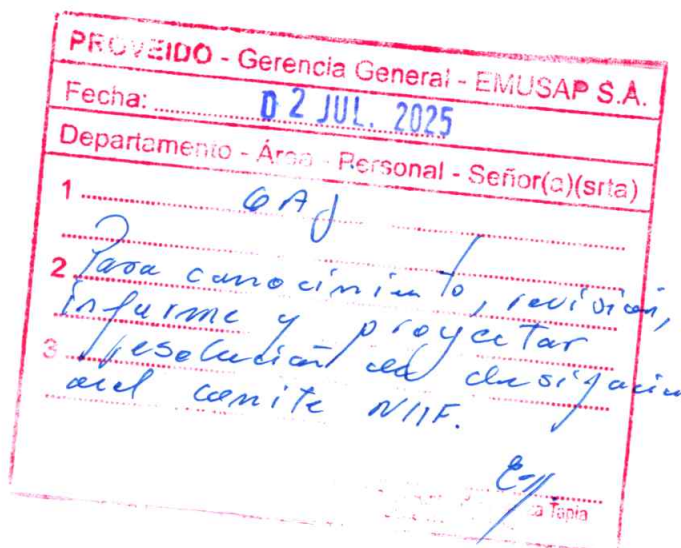 PROVEIDO - Gerencia General - EMUSAP S.A.
Fecha: 02 JUL. 2025
Departamento - Área - Personal - Señor(a)(srta)
1 GAJ
2 Para conocimiento, revisión,
informe y proyectar
3 resolución de designación
del comite NIIF.
Tapia